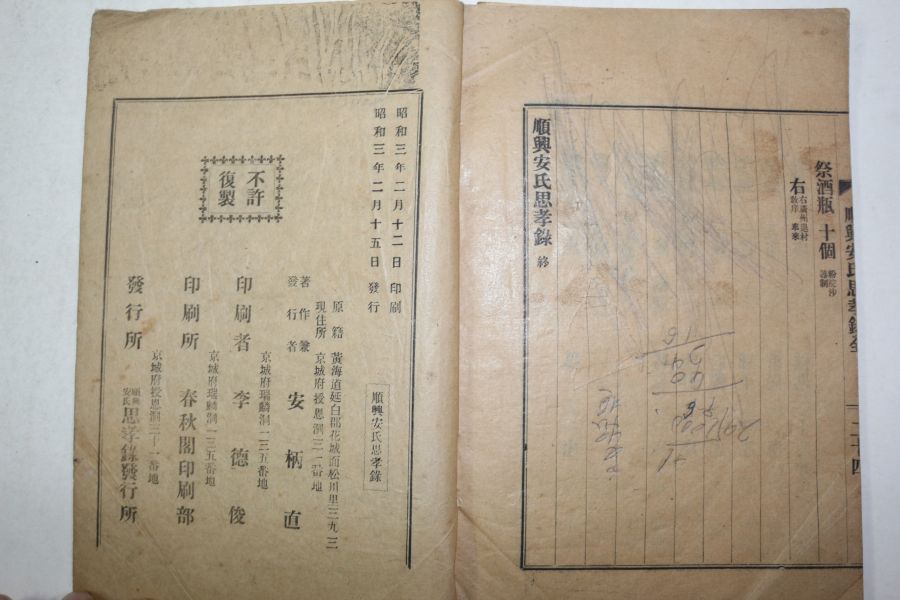 順興安氏思孝錄全
二百四
祭酒瓶 十個 粉院沙器制
右 右廣州退村
順興安氏思孝錄 終
昭和三年二月十二日 印刷
昭和三年二月十五日 發行
順興安氏思孝錄
不許
復製
原籍 黃海道延白郡花城面松川里三九三
現住所 京城府授恩洞三一番地
著作兼
發行者 安柄直
京城府瑞麟洞一三五番地
印刷者 李德俊
京城府瑞麟洞一三五番地
印刷所 春秋閣印刷部
京城府授恩洞三十一番地
發行所 順興安氏思孝錄發行所